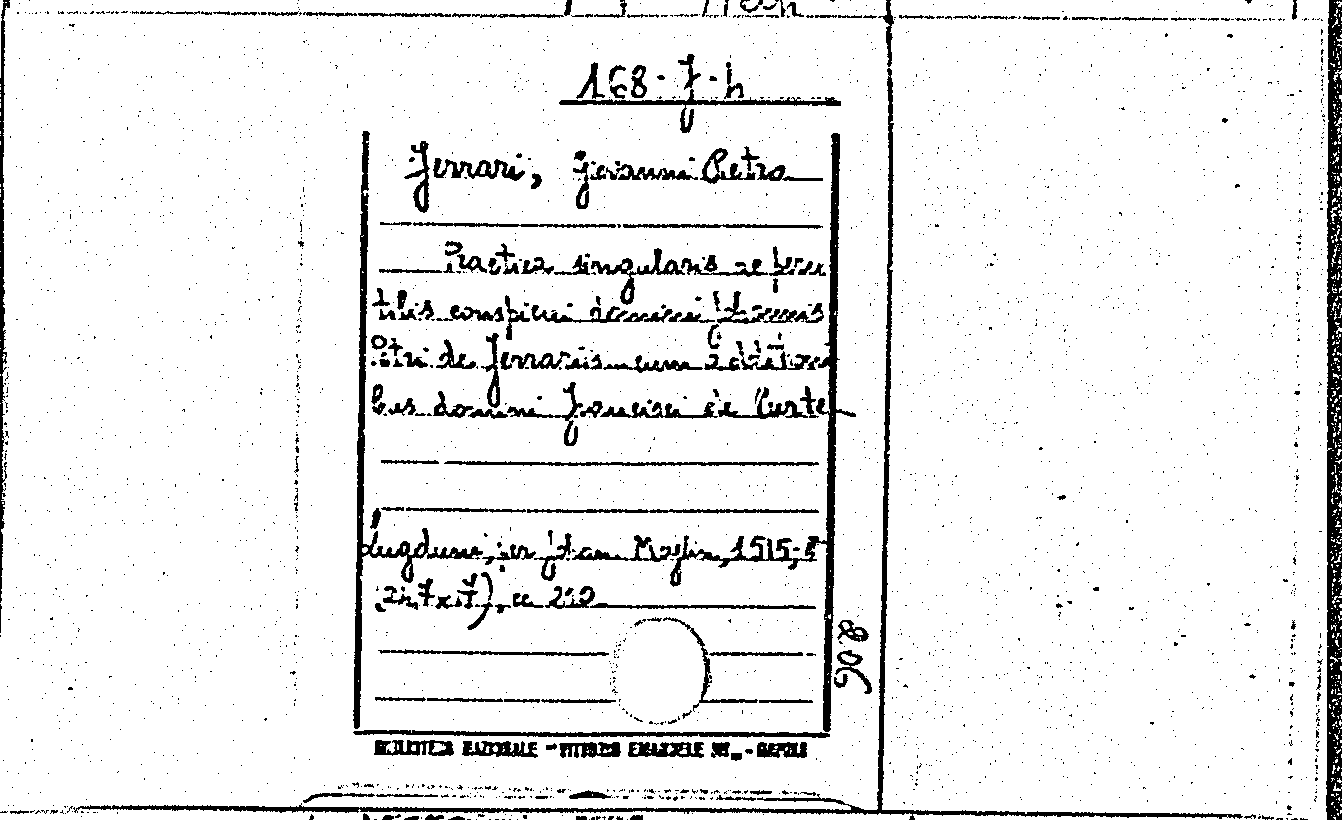 168-J-h
Ferrari, Giovanni Pietro
Practica singularis ac peru
tilis conspicui domini Joannis
Petri de Ferrariis cum addition
bus domini Francisci de Curte
Lugduni, per Joan. Moylin, 1515, 8°
(24,7x17), cc 250
806
BIBLIOTECA NAZIONALE "VITTORIO EMANUELE III" - NAPOLI